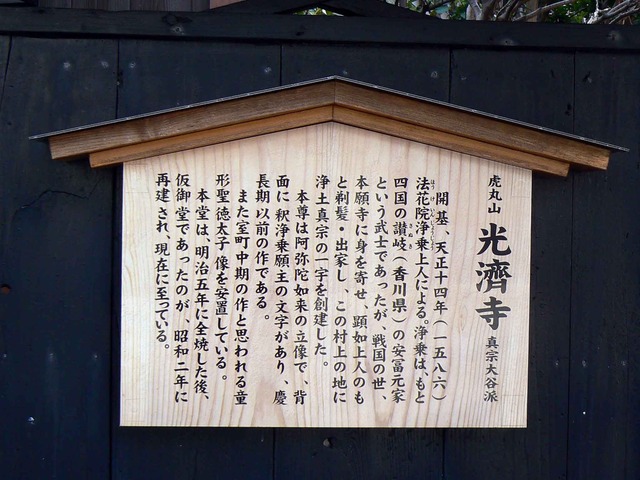 虎丸山 光濟寺 真宗大谷派
開基、天正十四年(一五八六)
法花院浄乗上人による。浄乗は、もと
四国の讃岐(香川県)の安冨元家
という武士であったが、戦国の世、
本願寺に身を寄せ、顕如上人のも
と剃髪・出家し、この村上の地に
浄土真宗の一宇を創建した。
本尊は阿弥陀如来の立像で、背
面に釈浄乗願主の文字があり、慶
長期以前の作である。
また室町中期の作と思われる童
形聖徳太子像を安置している。
本堂は、明治五年に全焼した後、
仮御堂であったのが、昭和二年に
再建され、現在に至っている。